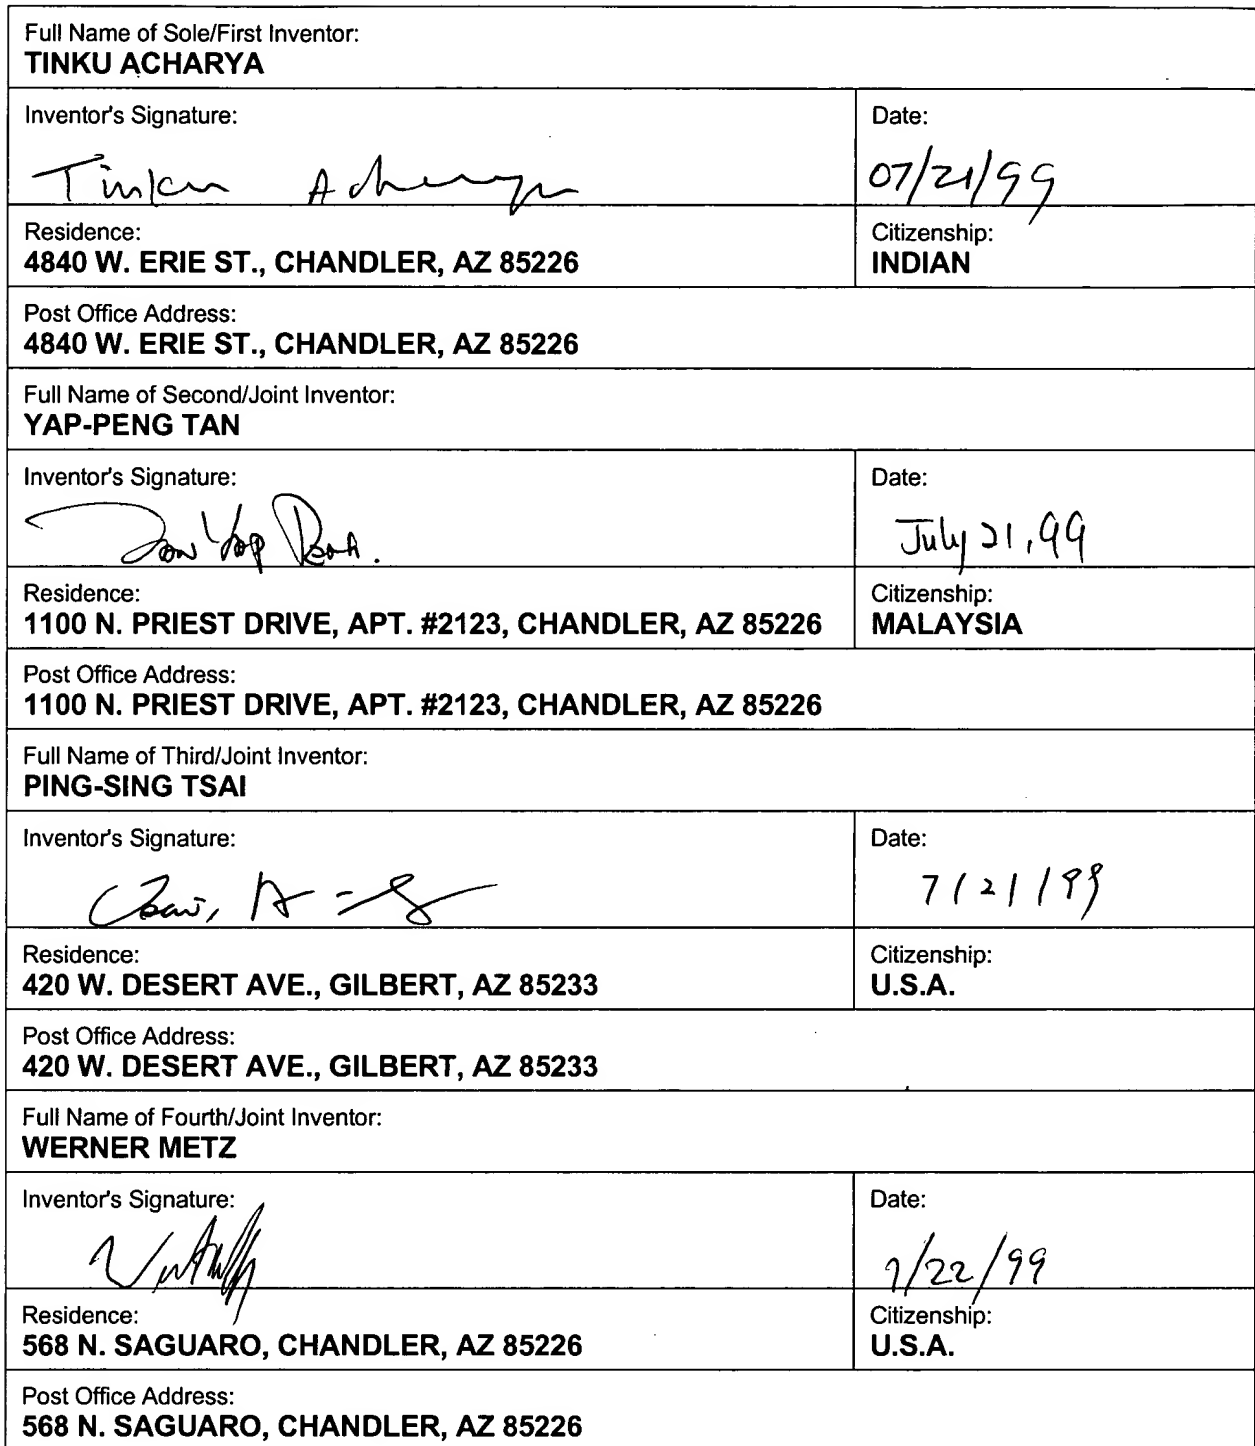 Full Name of Sole/First Inventor:
TINKU ACHARYA
Inventor's Signature:
Tinku Acharya
Date:
07/21/99
Residence:
4840 W. ERIE ST., CHANDLER, AZ 85226
Citizenship:
INDIAN
Post Office Address:
4840 W. ERIE ST., CHANDLER, AZ 85226
Full Name of Second/Joint Inventor:
YAP-PENG TAN
Inventor's Signature:
Tan Yap Peng.
Date:
July 21, 99
Residence:
1100 N. PRIEST DRIVE, APT. #2123, CHANDLER, AZ 85226
Citizenship:
MALAYSIA
Post Office Address:
1100 N. PRIEST DRIVE, APT. #2123, CHANDLER, AZ 85226
Full Name of Third/Joint Inventor:
PING-SING TSAI
Inventor's Signature:
Tsai,
Date:
7/21/99
Residence:
420 W. DESERT AVE., GILBERT, AZ 85233
Citizenship:
U.S.A.
Post Office Address:
420 W. DESERT AVE., GILBERT, AZ 85233
Full Name of Fourth/Joint Inventor:
WERNER METZ
Inventor's Signature:
Date:
7/22/99
Residence:
568 N. SAGUARO, CHANDLER, AZ 85226
Citizenship:
U.S.A.
Post Office Address:
568 N. SAGUARO, CHANDLER, AZ 85226